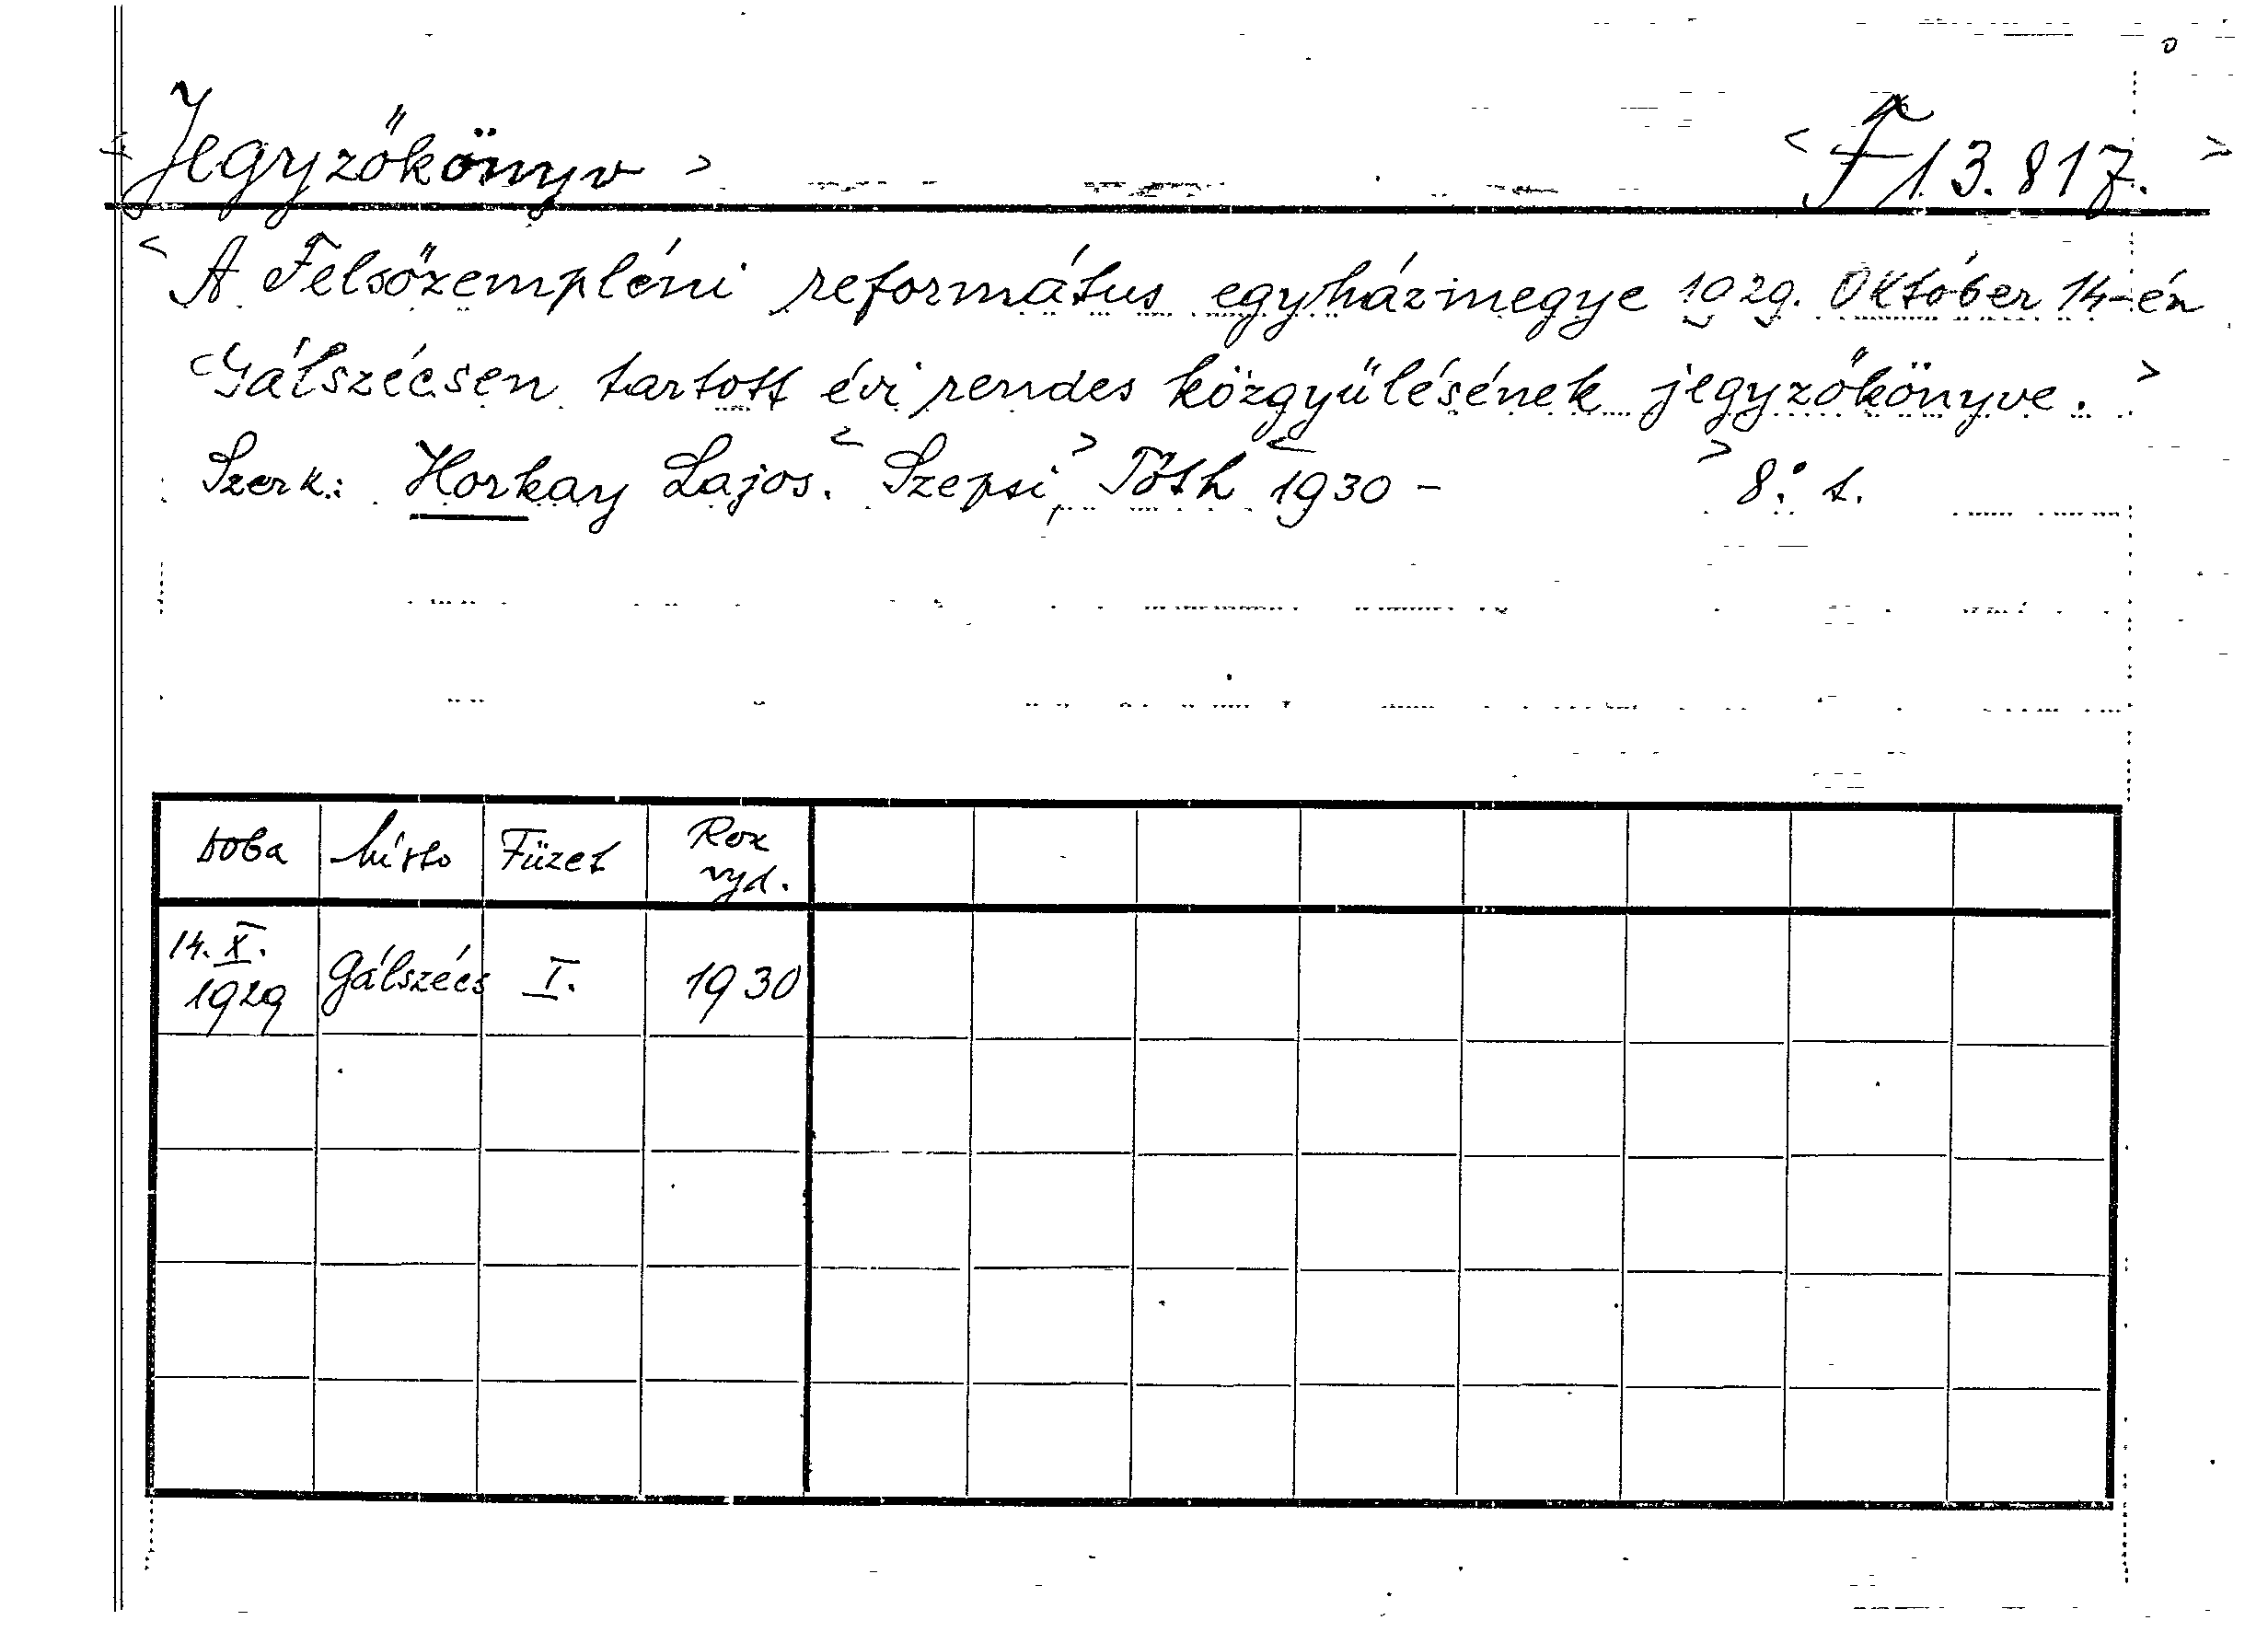 < Jegyzőkönyv > < F 13.817. >
< A Felsőzempléni református egyházmegye 1929. Október 14-én
Gálszécsen tartott évi rendes közgyűlésének jegyzőkönyve. >
Szerk.: Horkay Lajos. < Szepsi, > Tóth < 1930 - > 8° t.
Doba Místo Füzet Rok vyd.
14. X. 1929 Gálszécs I. 1930